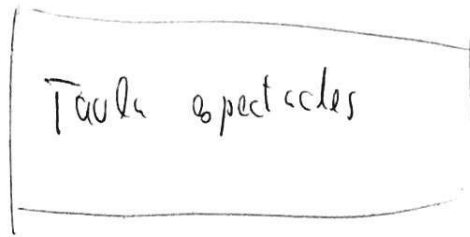 Taula espectacles